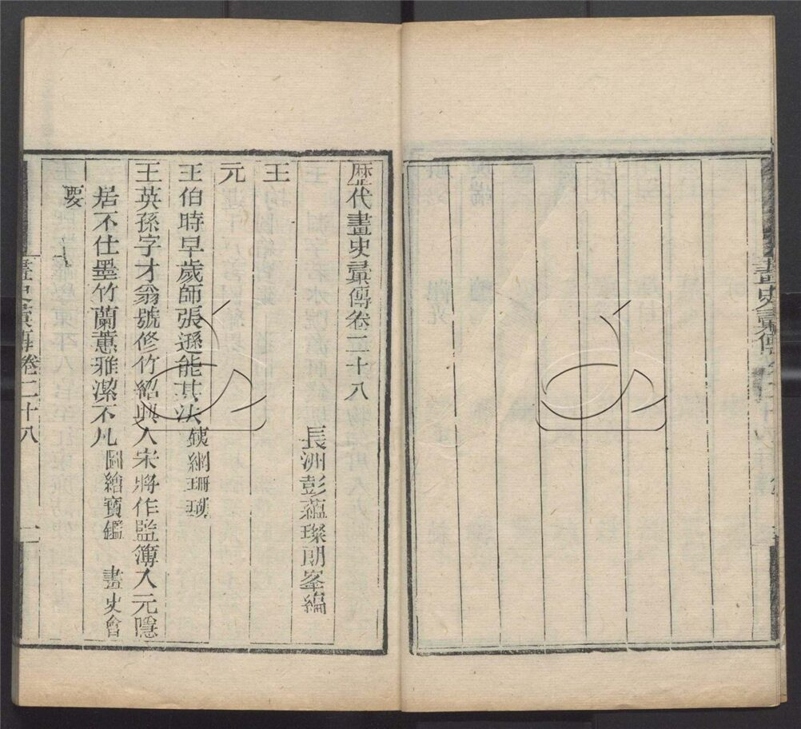 歷代畫史彙傳卷二十八
長洲彭蘊璨朗峯編
王
元
王伯時早歲師張遜能其法鐵網珊瑚
王英孫字才翁號修竹紹興人宋將作監簿入元隱
居不仕墨竹蘭蕙雅潔不凡圖繪寶鑑 畫史會
要
畫史彙傳卷二十八 一